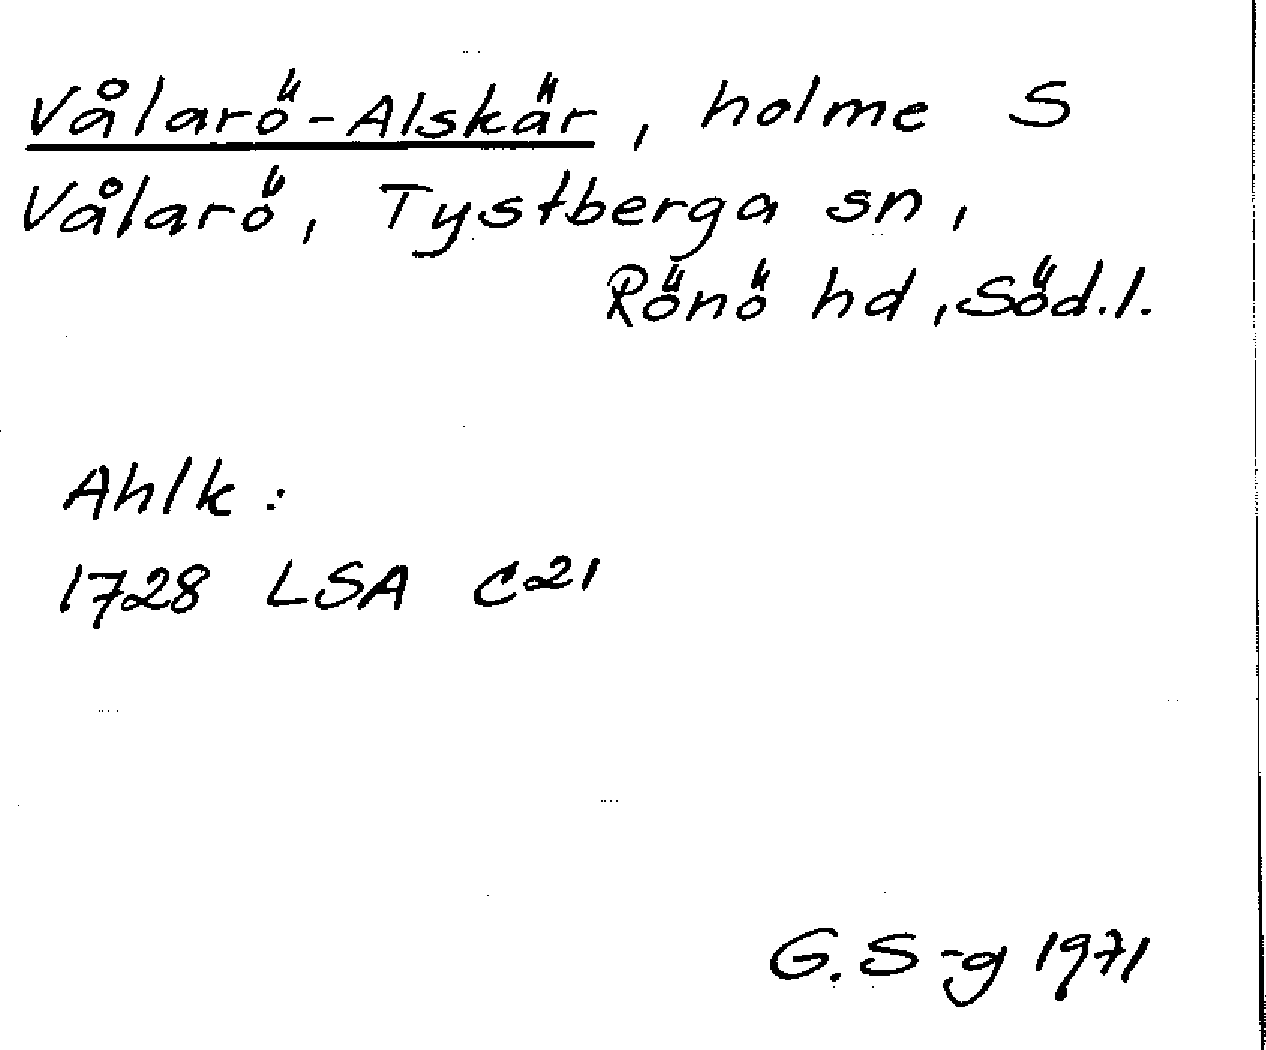 Vålarö-Alskär, holme S
Vålarö, Tystberga sn,
Rönö hd, Söd.l.
Ahlk:
1728 LSA C21
G. S-g 1971